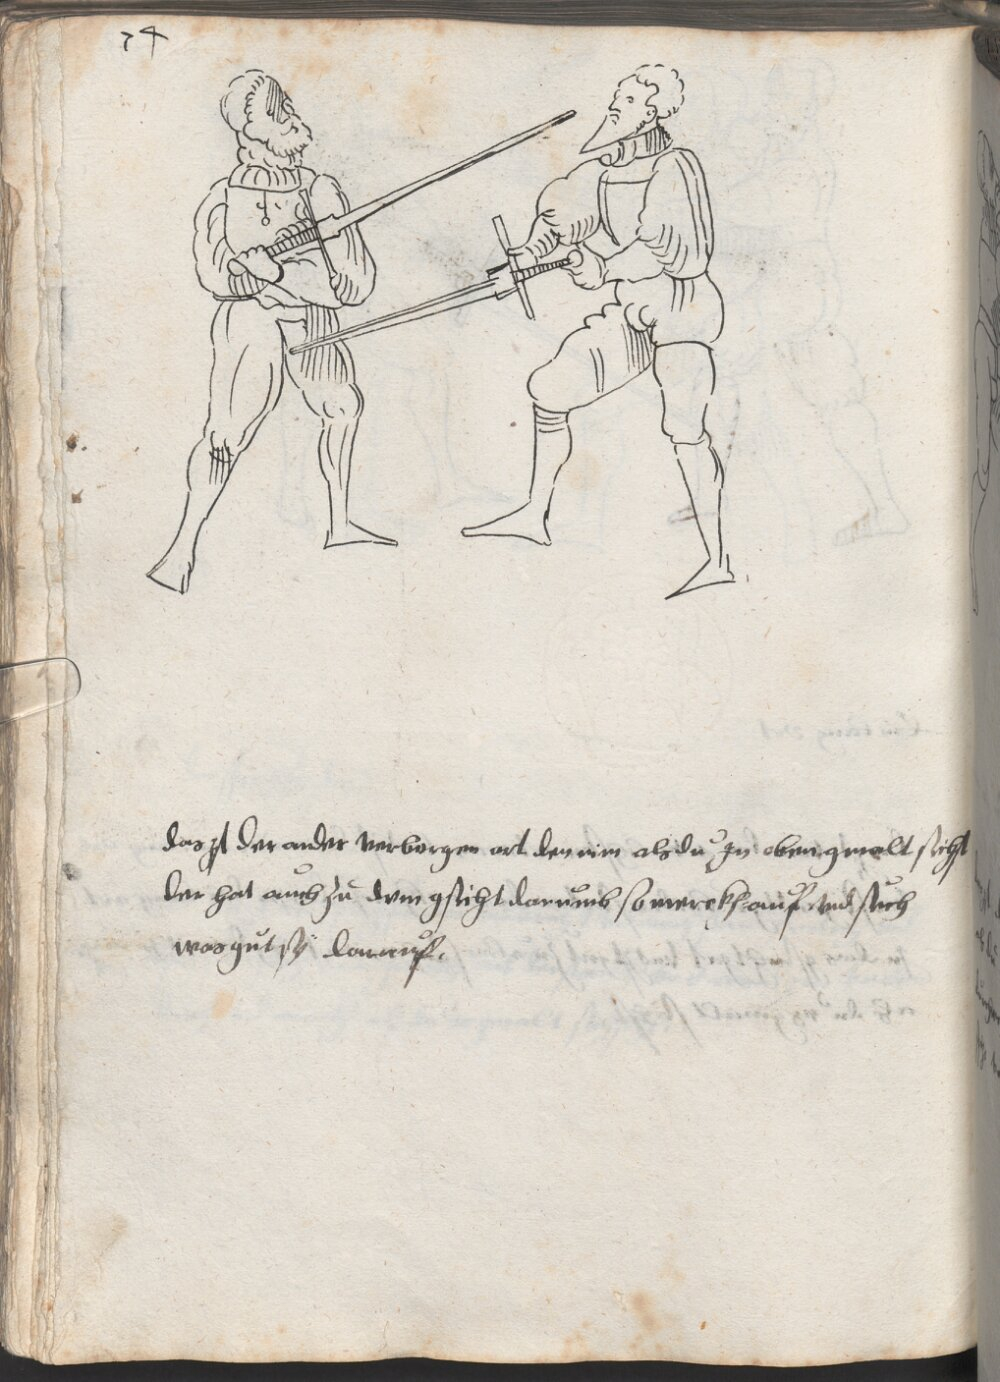 74
das ist der ander verborgen ort den nim als du In oben gmalt sichst
der hat auch zu dem gsicht darumb so merckh auf vnd such
was gut sÿ darauf.